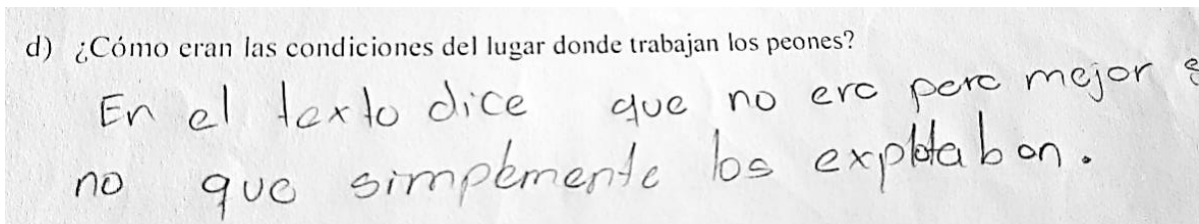 d) ¿Cómo eran las condiciones del lugar donde trabajan los peones?
En el texto dice que no era para mejor
no que simplemente los explotaban.